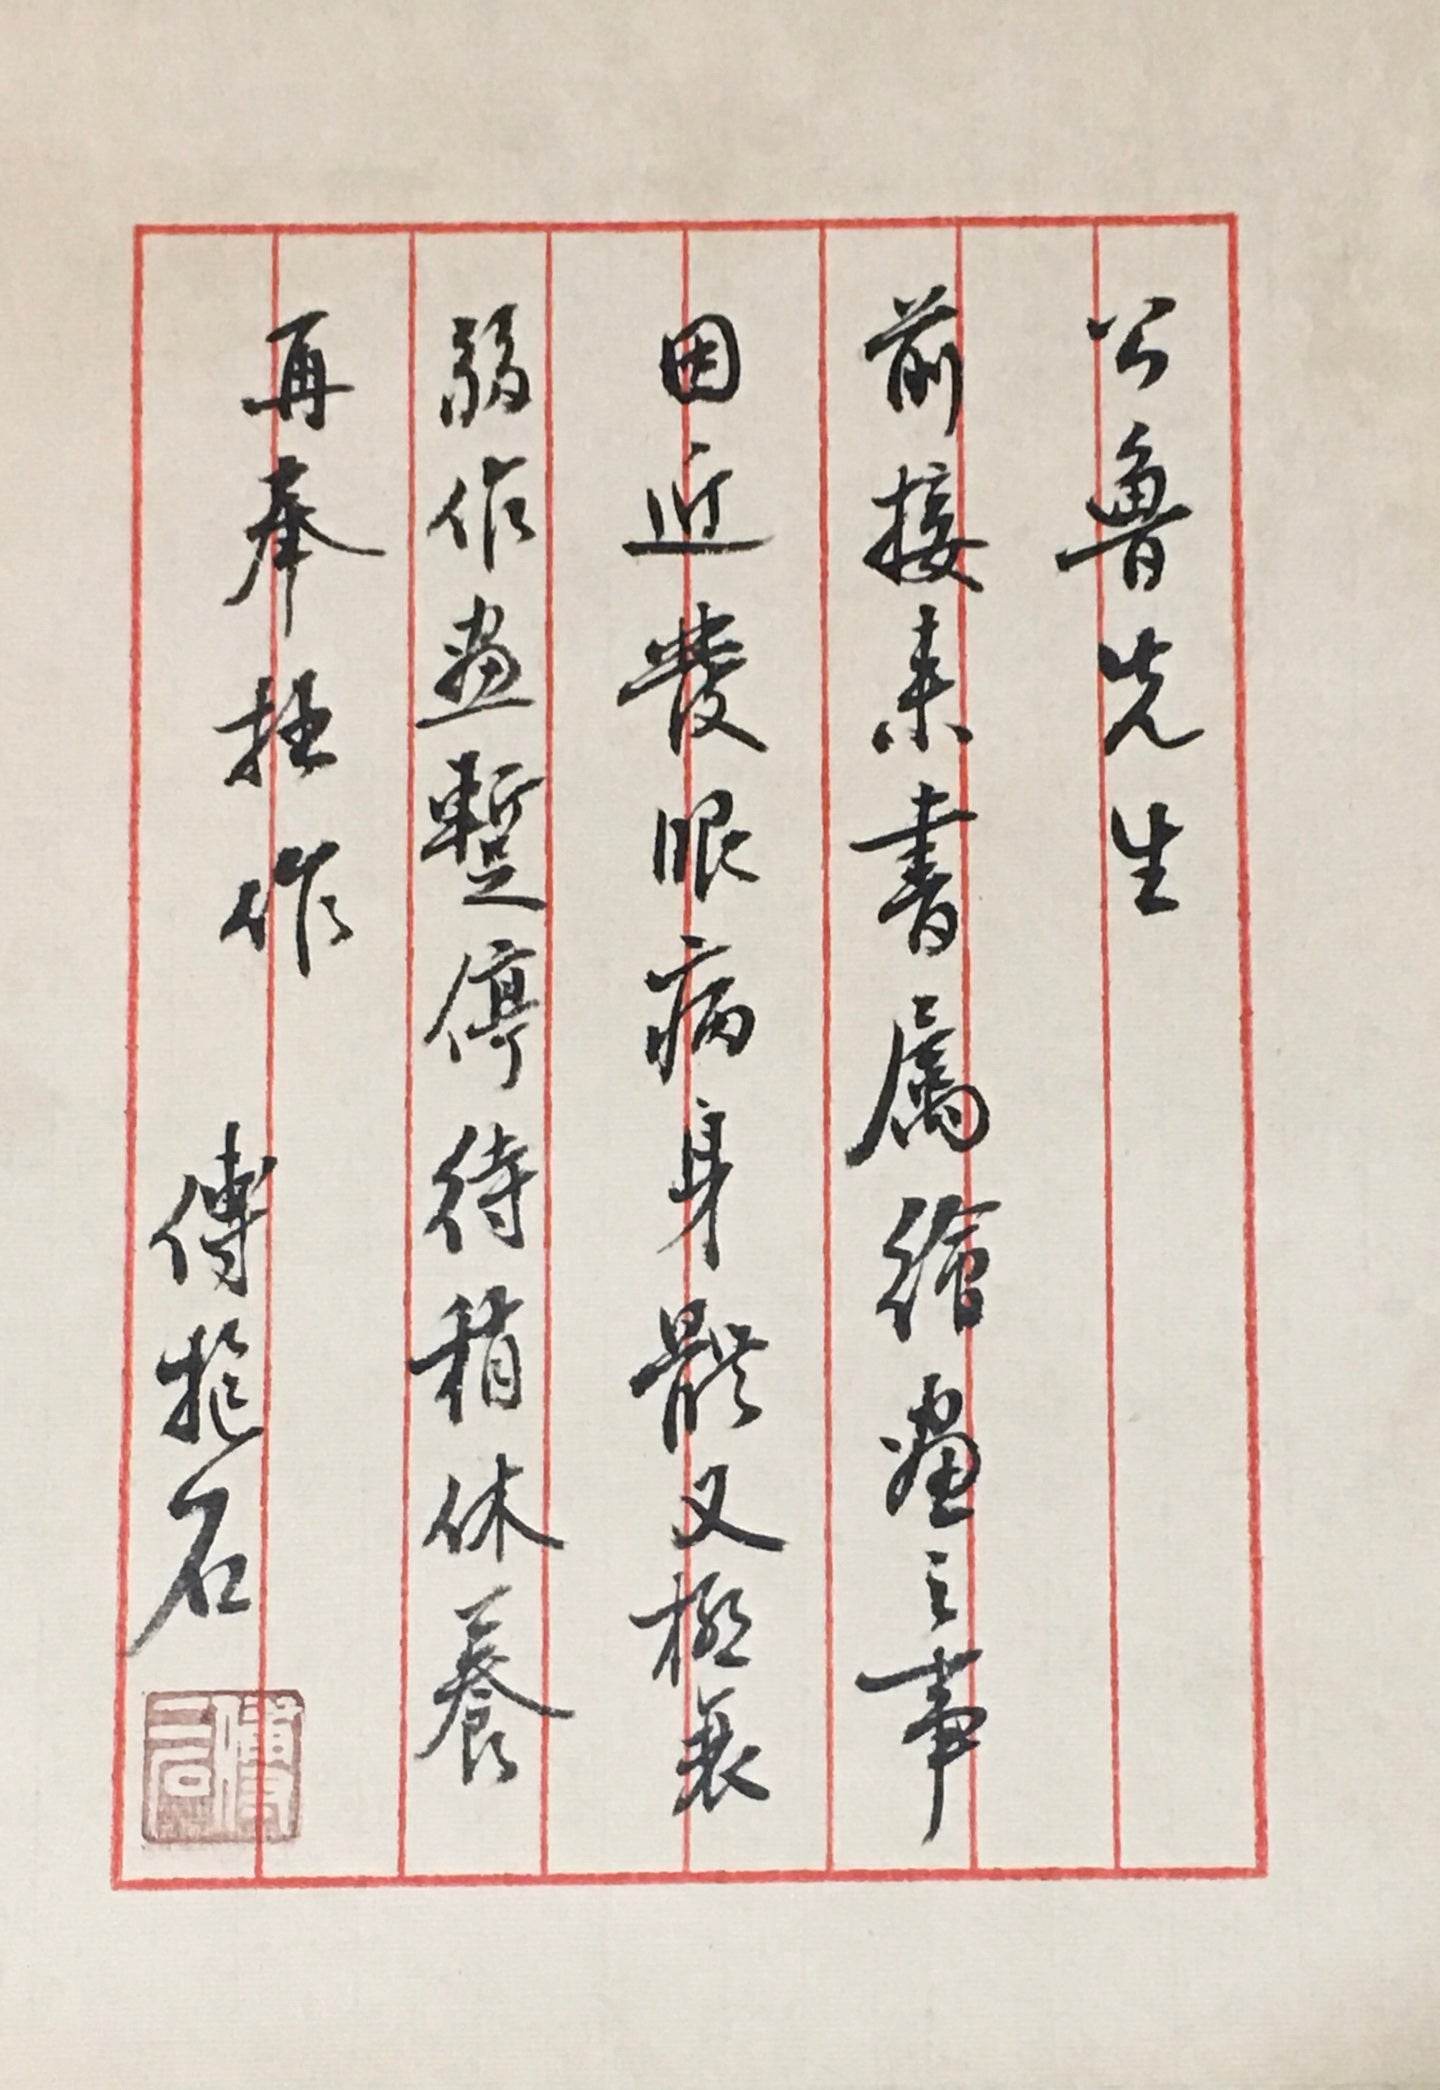 公魯先生
前接来書属繪畫之事
因近發眼病身體又極衰
弱作畫暫停待稍休養
再奉拙作
傅抱石
傅
石